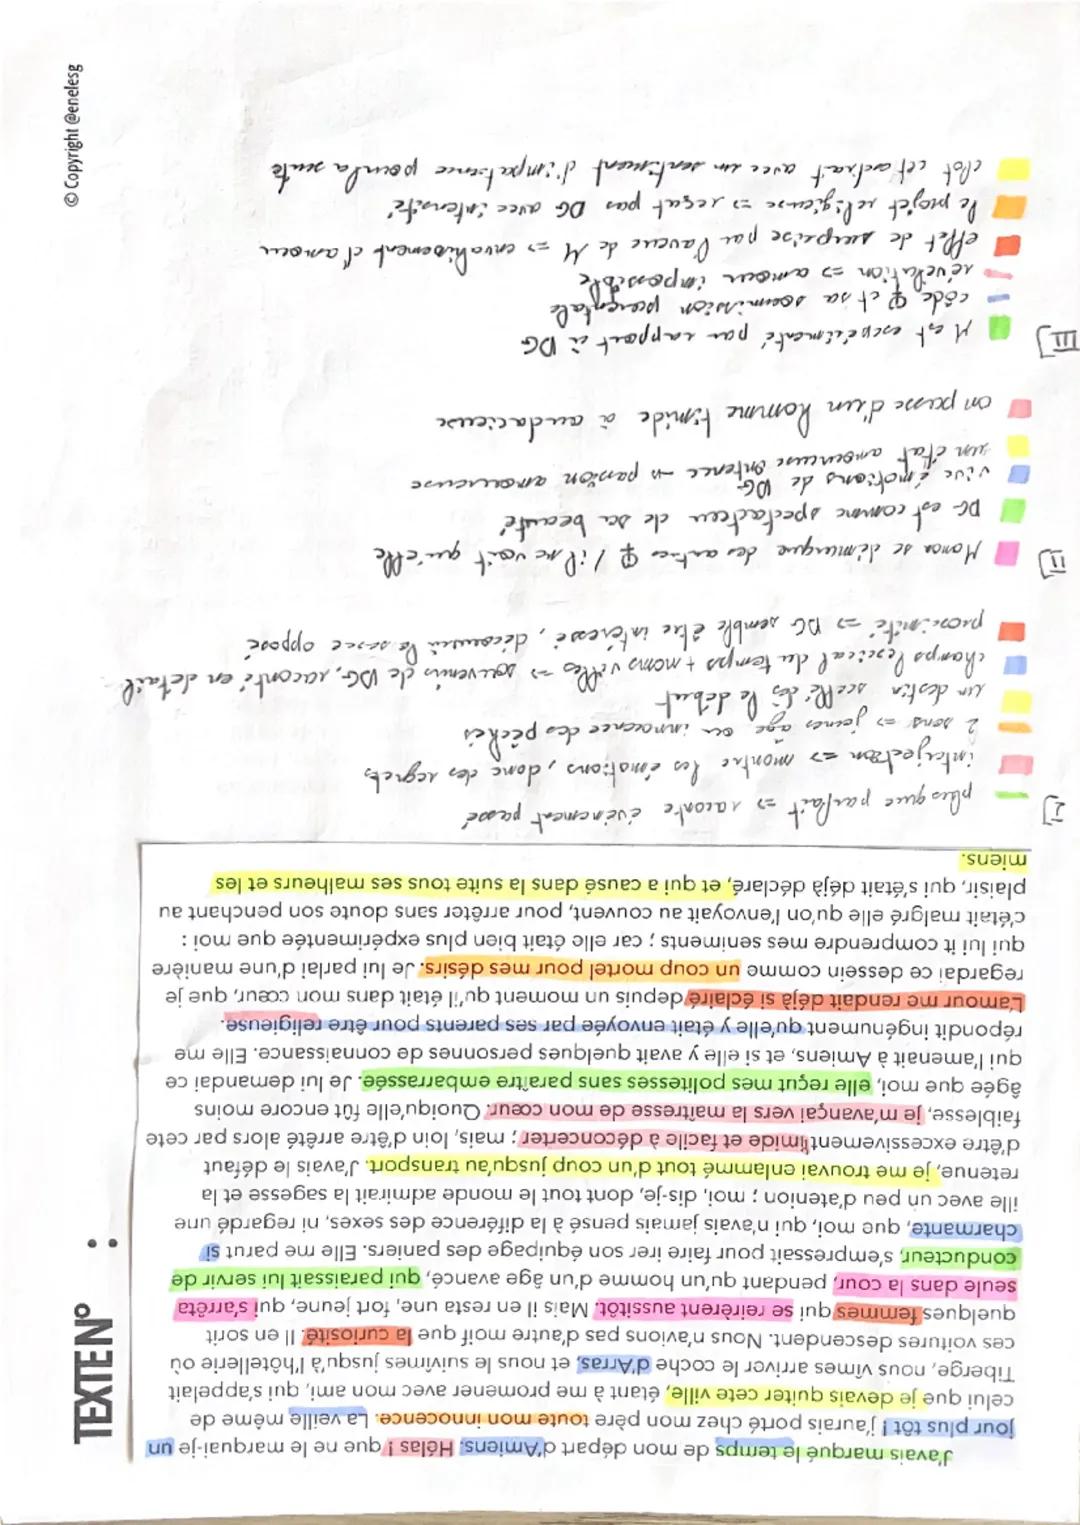 TEXTE N° :
J'avais marqué le temps de mon départ d'Amiens. Hélas ! que ne le marquai-je un
jour plus tôt ! j'aurais porté chez mon père toute mon innocence. La veille même de
celui que je devais quiter cete ville, étant à me promener avec mon ami, qui s'appelait
Tiberge, nous vîmes arriver le coche d'Arras, et nous le suivîmes jusqu'à l'hôtellerie où
ces voitures descendent. Nous n'avions pas d'autre moif que la curiosité. Il en sorit
quelques femmes qui se reirèrent aussitôt. Mais il en resta une, fort jeune, qui s'arrêta
seule dans la cour, pendant qu'un homme d'un âge avancé, qui paraissait lui servir de
conducteur, s'empressait pour faire irer son équipage des paniers. Elle me parut si
charmante, que moi, qui n'avais jamais pensé à la diférence des sexes, ni regardé une
ille avec un peu d'atenion ; moi, dis-je, dont tout le monde admirait la sagesse et la
retenue, je me trouvai enlammé tout d'un coup jusqu'au transport. J'avais le défaut
d'être excessivement timide et facile à déconcerter ; mais, loin d'être arrêté alors par cete
faiblesse, je m'avançai vers la maîtresse de mon cœur. Quoiqu'elle fût encore moins
âgée que moi, elle reçut mes politesses sans paraître embarrassée. Je lui demandai ce
qui l'amenait à Amiens, et si elle y avait quelques personnes de connaissance. Elle me
répondit ingénument qu'elle y était envoyée par ses parents pour être religieuse.
L'amour me rendait déjà si éclairé, depuis un moment qu'il était dans mon cœur, que je
regardai ce dessein comme un coup mortel pour mes désirs. Je lui parlai d'une manière
qui lui it comprendre mes seniments ; car elle était bien plus expérimentée que moi :
c'était malgré elle qu'on l'envoyait au couvent, pour arrêter sans doute son penchant au
plaisir, qui s'était déjà déclaré, et qui a causé dans la suite tous ses malheurs et les
miens.
I] plus que parfait => raconte événement passé
interjection => montre les émotions, donc des regrets
2 sens => jeunes âge ou innocence des péchés
un destin scellé dès le début
champs lexical du temps + noms villes => souvenirs de DG, raconté en detail
proximité => DG semble être intéressé, découvrir le sexe opposé
II] Manon se démarque des autres ♀ / il ne voit qu'elle
DG est comme spectateur de sa beauté
vive émotions de DG
un état amoureuse intence → passion amoureuse
on passe d'un homme timide à audacieuse
III] M est expérimenté par rapport à DG
côde ♀ et sa soumission parentale
révélation => amour impossible
effet de surprise par l'aveue de M => envahissement d'amour
le projet religieuse => reçut pas DG avec intensité
clot cet extrait avec un sentiment d'impatience pour la suite
© Copyright @enelesg